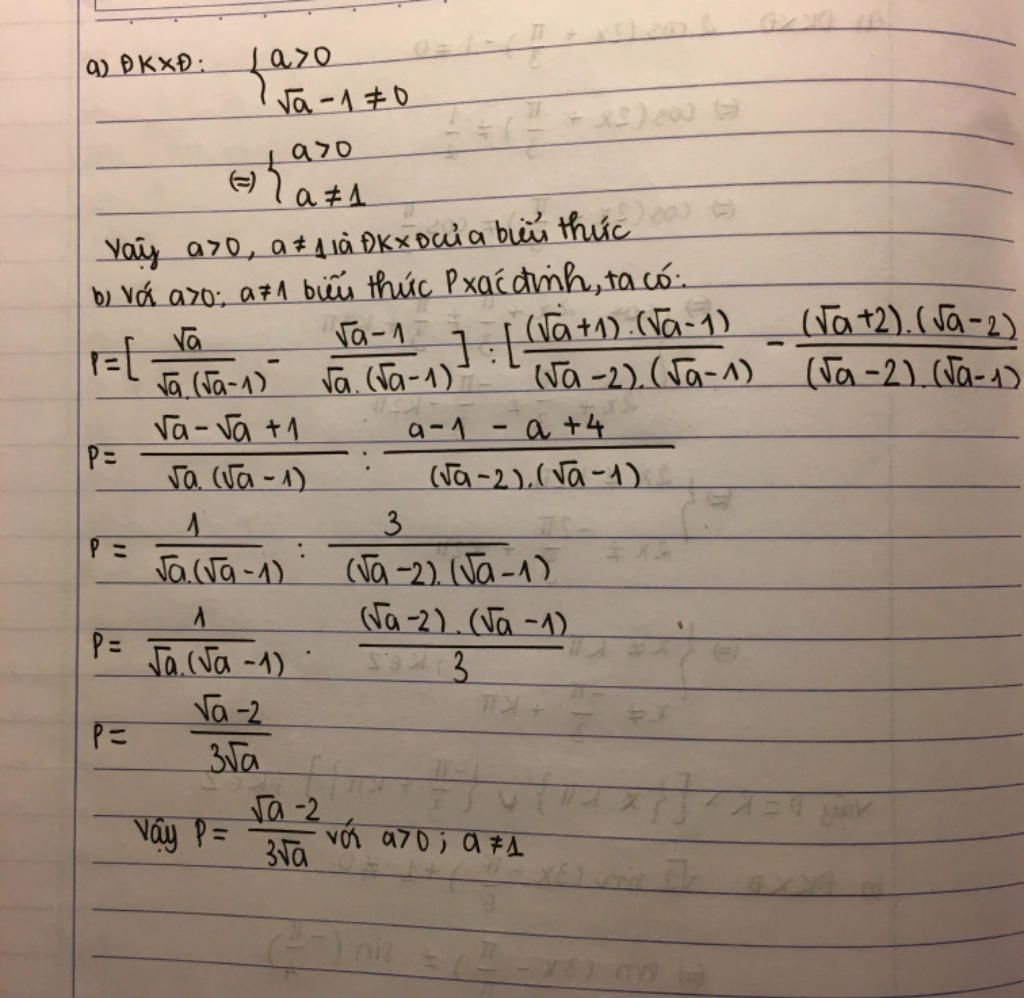 a) ĐKXĐ: { a>0
√a - 1 ≠ 0
(=) { a>0
a ≠ 1
Vậy a>0, a≠1 là ĐKXĐ của biểu thức
b) Với a>0; a≠1 biểu thức P xác định, ta có:
P = [ √a / √a.(√a-1) - √a-1 / √a.(√a-1) ] : [ (√a+1).(√a-1) / (√a-2).(√a-1) - (√a+2).(√a-2) / (√a-2).(√a-1)
P = √a - √a + 1 / √a.(√a-1) : a-1 - a+4 / (√a-2).(√a-1)
P = 1 / √a.(√a-1) : 3 / (√a-2).(√a-1)
P = 1 / √a.(√a-1) . (√a-2).(√a-1) / 3
P = √a-2 / 3√a
Vậy P = √a-2 / 3√a với a>0; a≠1